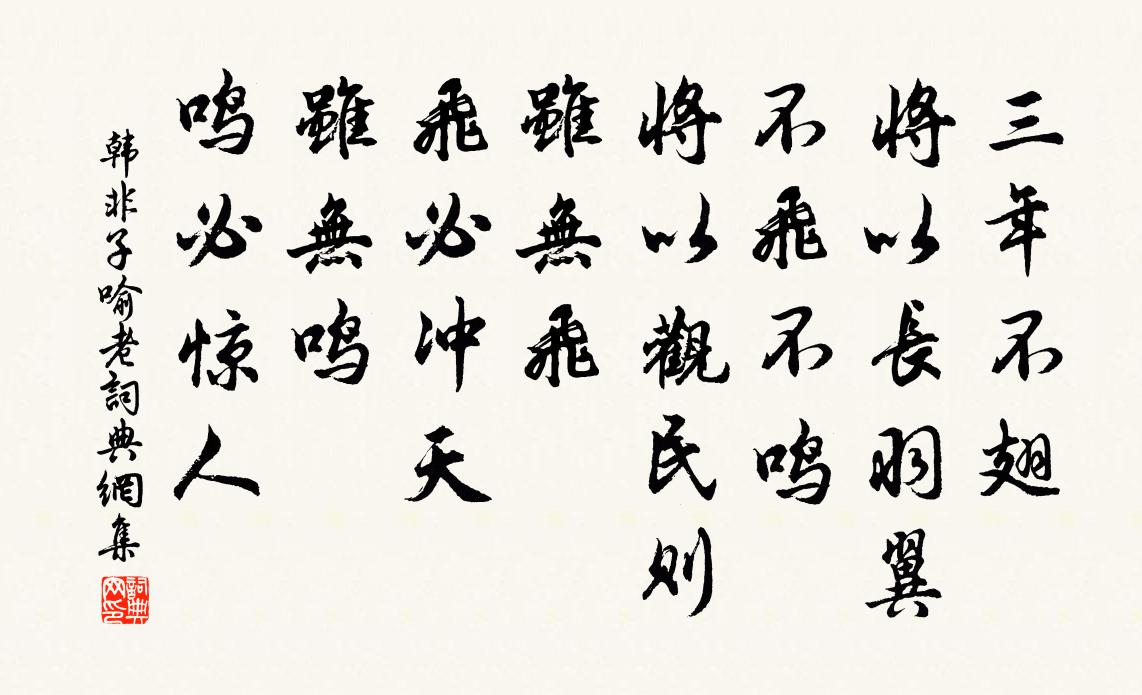 三年不翅
將以長羽翼
不飛不鸣
將以觀民则
雖無飛
飛必冲天
雖無鸣
鸣必惊人
韩非子喻老詞典網集
詞典网印